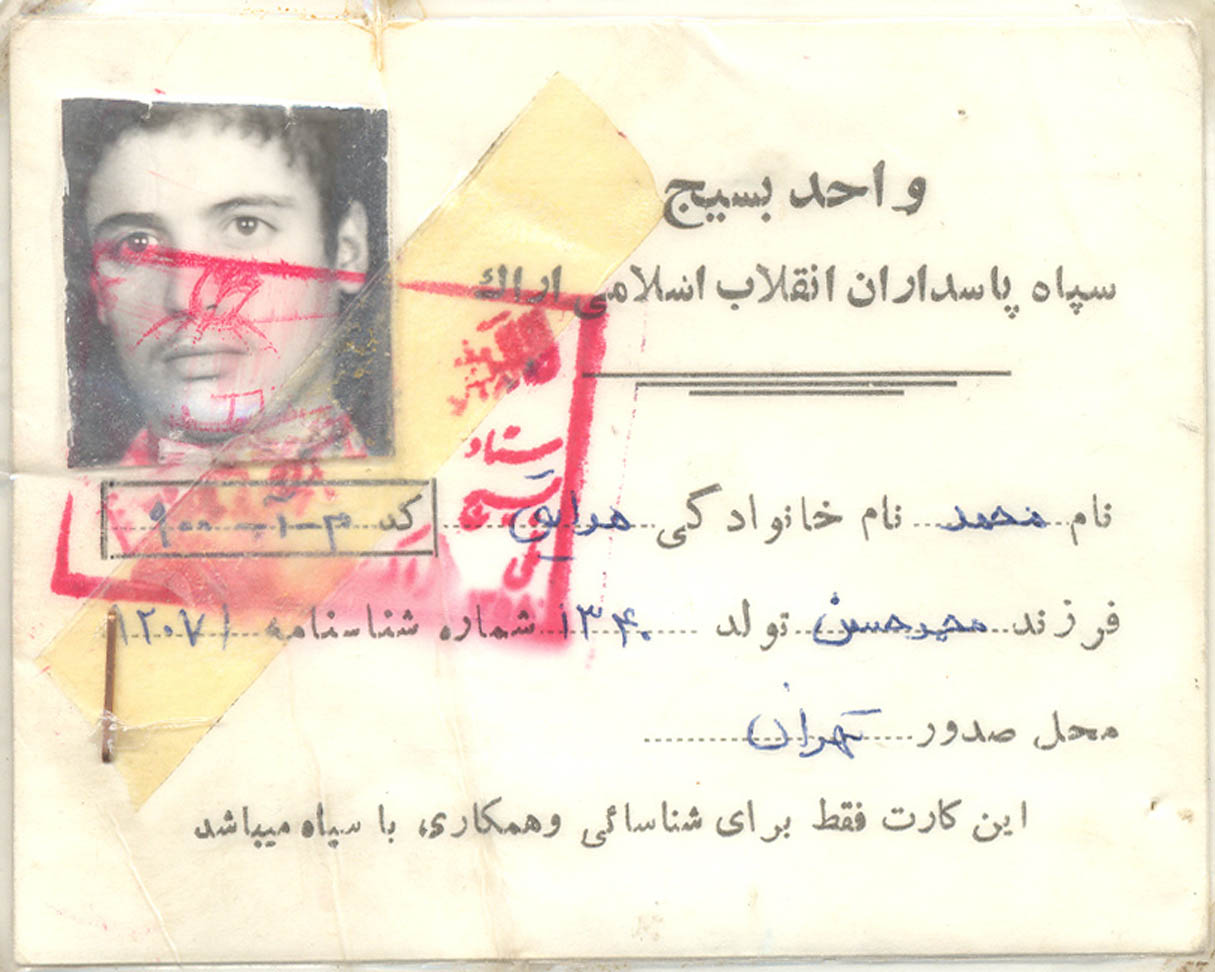 واحد بسیج
سپاه پاسداران انقلاب اسلامی اراك
ستاد
بسیج
نام محمد نام خانوادگی
کد
فرزند محمد حسن تولد ۱۳۴۰ شماره شناسنامه ۱۲۰۷۱
محل صدور تهران
این کارت فقط برای شناسائی وهمکاری، با سپاه میباشد